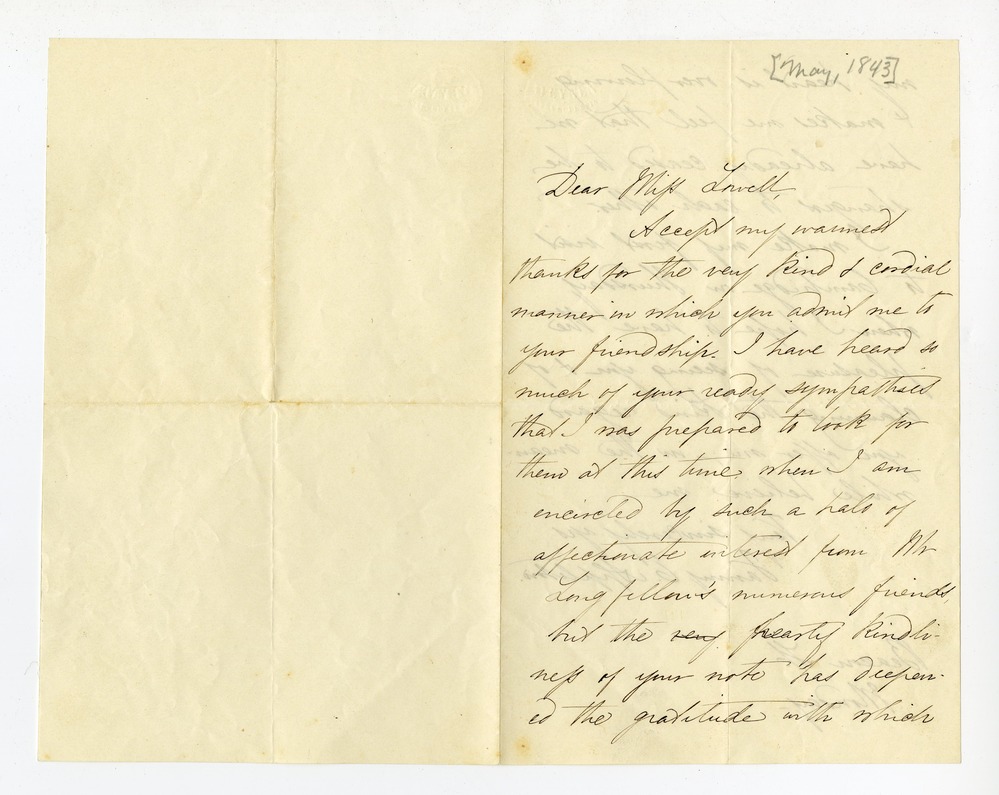 [May, 1843]
Dear Miss Lowell,
Accept my warmest
thanks for the very kind & cordial
manner in which you admit me to
your friendship. I have heard so
much of your ready sympathies
that I was prepared to look for
them at this time when I am
encircled by such a halo of
affectionate interest from Mr
Longfellow's numerous friends,
but the very hearty kindli-
ness of your note has deepen-
ed the gratitude with which